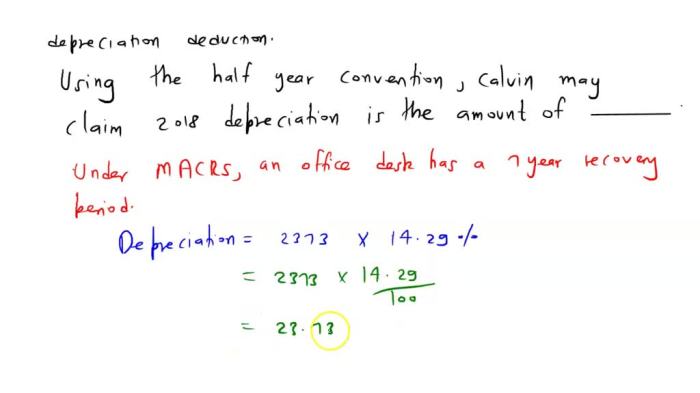 depreciation deduction.
Using the half year convention, Calvin may
claim 2018 depreciation is the amount of ______.
Under MACRS, an office desk has a 7 year recovery
period.
Depreciation = 2373 × 14.29 %
= 2373 × 14.29
100
= 23.73